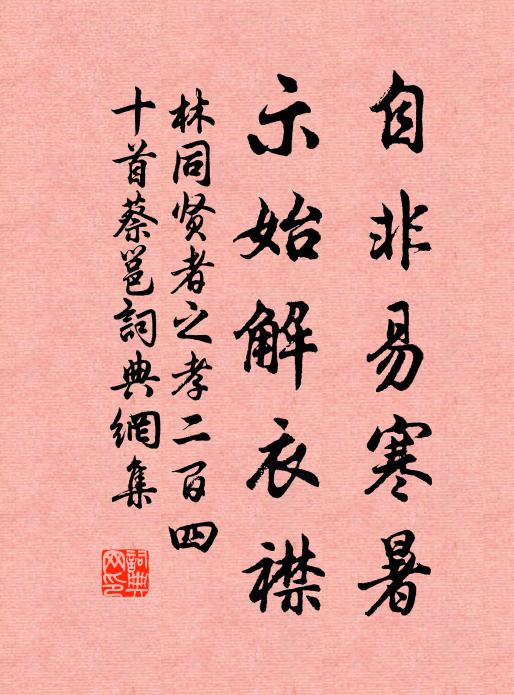 自非易寒暑
示始解衣襟
林同贤者之孝二百四
十首蔡邕詞典網集
詞典
网印